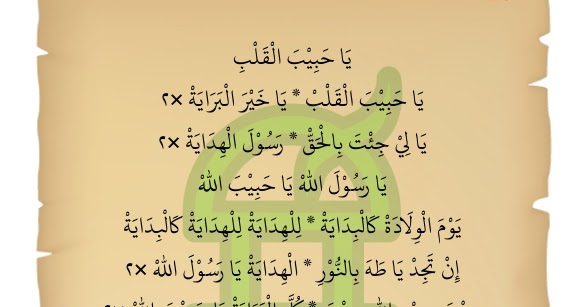 يَا حَبِيْبَ الْقَلْبِ
يَا حَبِيْبَ الْقَلْبْ * يَا خَيْرَ الْبَرَايَةْ ×٢
يَا لِيْ جِئْتَ بِالْحَقّْ * رَسُوْلَ الْهِدَايَةْ ×٢
يَا رَسُوْلَ اللهْ يَا حَبِيْبَ اللهْ
يَوْمَ الْوِلَادَةْ كَالْبِدَايَةْ * لِلْهِدَايَةْ لِلْهِدَايَةْ كَالْبِدَايَةْ
إِنْ تَجِدْ يَا طَهَ بِالنُّوْرِ * الْهِدَايَةْ يَا رَسُوْلَ اللهْ ×٢